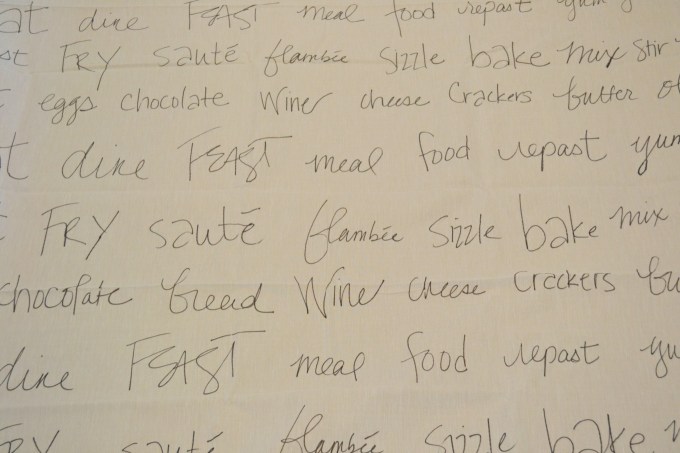 at dine FEAST meal food repast yum
FRY sauté flambée sizzle bake mix stir
eggs chocolate wine cheese crackers butter
dine FEAST meal food repast yum
FRY sauté flambée sizzle bake mix
chocolate bread wine cheese crackers
dine FEAST meal food repast yu
FRY sauté flambée sizzle bake